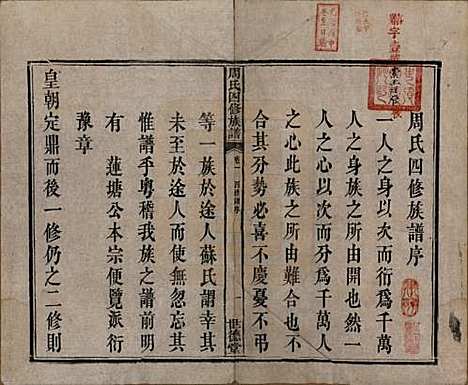 周氏四修族譜序
一人之身以次而衍爲千萬
人之身族之所由開也然一
人之心以次而分爲千萬人
之心此族之所由難合也不
合其分勢必喜不慶憂不吊
周氏四修族譜
卷一
四修譜序
一
世德堂
等一族於途人蘇氏謂幸其
未至於途人而無忽忘其
惟譜乎粵稽我族之譜前明
有 蓮塘公本宗便覽派衍
豫章
皇朝定鼎而後一修仍之二修則